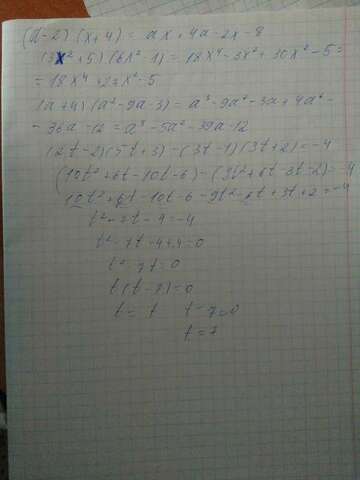 (a-2)(x+4) = ax + 4a - 2x - 8
(3x²+5)(6x²-1) = 18x⁴ - 3x² + 30x² - 5 =
= 18x⁴ + 27x² - 5
(a+4)(a²-9a-3) = a³ - 9a² - 3a + 4a² -
- 36a - 12 = a³ - 5a² - 39a - 12
(2t-2)(5t+3) - (3t-1)(3t+2) = -4
(10t² + 6t - 10t - 6) - (9t² + 6t - 3t - 2) = -4
10t² + 6t - 10t - 6 - 9t² - 6t + 3t + 2 = -4
t² - 7t - 4 = -4
t² - 7t - 4 + 4 = 0
t² - 7t = 0
t(t-7) = 0
t = t t - 7 = 0
t = 7